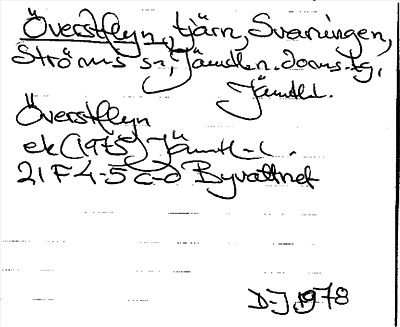 Överstflyn, tjärn, Svaningen,
Ströms sn, Jämtlen. doms.tg,
Jämtl.l.
Överstflyn
ek (1975) Jämtl-l.
21 F 4-5 c-d Byvattnet
D-J 1978